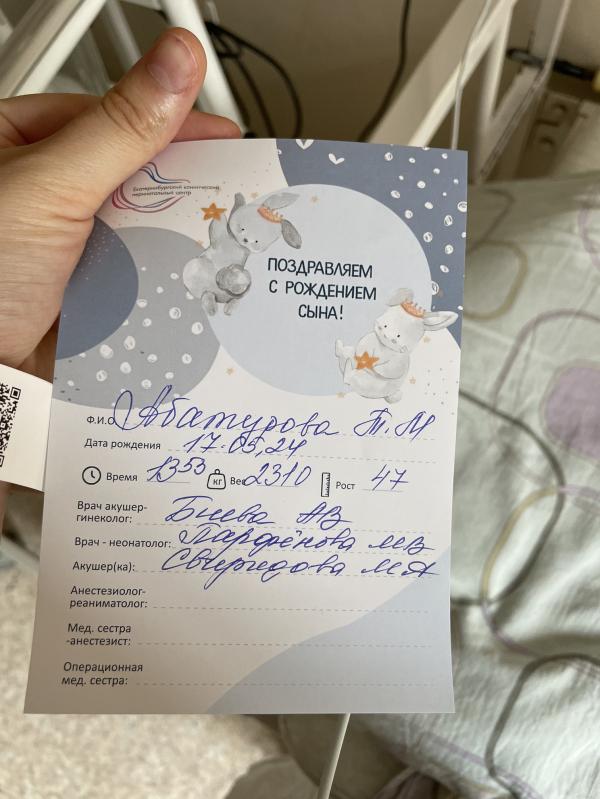 Екатеринбургский клинический
перинатальный центр
ПОЗДРАВЛЯЕМ
С РОЖДЕНИЕМ
СЫНА!
Ф.И.О. Абатурова Т.М
Дата рождения 17.05,24
Время 13 53 КГ Вес 2310 Рост 47
Врач акушер-
гинеколог: Биева АВ
Врач - неонатолог: Парфёнова МВ
Акушер(ка): Свиридова МА
Анестезиолог-
реаниматолог:
Мед. сестра
-анестезист:
Операционная
мед. сестра: